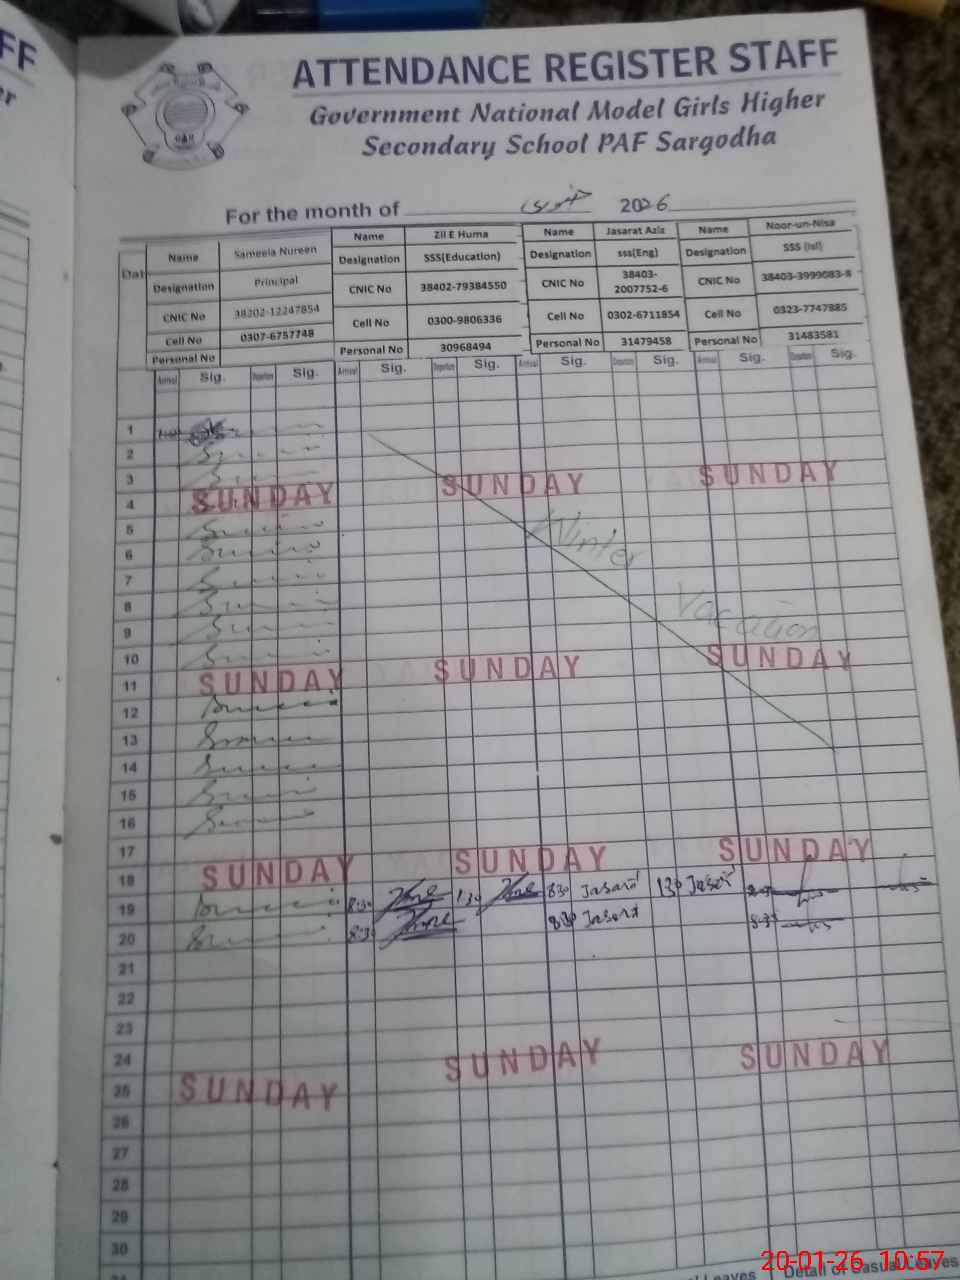 FF
er
ATTENDANCE REGISTER STAFF
Government National Model Girls Higher
Secondary School PAF Sargodha
For the month of 2026
Date
Name Sameela Nureen Name Zil E Huma Name Jasarat Aziz Name Noor-un-Nisa
Designation Principal Designation SSS(Education) Designation sss(Eng) Designation SSS (Isl)
CNIC No 38202-12247854 CNIC No 38402-79384550 CNIC No 38403-2007752-6 CNIC No 38403-3999083-8
Cell No 0307-6757748 Cell No 0300-9806336 Cell No 0302-6711854 Cell No 0323-7747885
Personal No Personal No 30968494 Personal No 31479458 Personal No 31483581
Arrival Sig. Departure Sig. Arrival Sig. Departure Sig. Arrival Sig. Departure Sig. Arrival Sig. Departure Sig.
1
2
3
4 SUNDAY SUNDAY SUNDAY
5
6 Winter
7
8
9 Vacation
10
11 SUNDAY SUNDAY SUNDAY
12
13
14
15
16
17
18 SUNDAY SUNDAY SUNDAY
19 8:30 1:30 830 Jasarat 130 Jasarat
20 8:30 830 Jasarat 8:30
21
22
23
24
25 SUNDAY SUNDAY SUNDAY
26
27
28
29
30
Leaves Detail of Casual Leaves
20-01-26 10:57